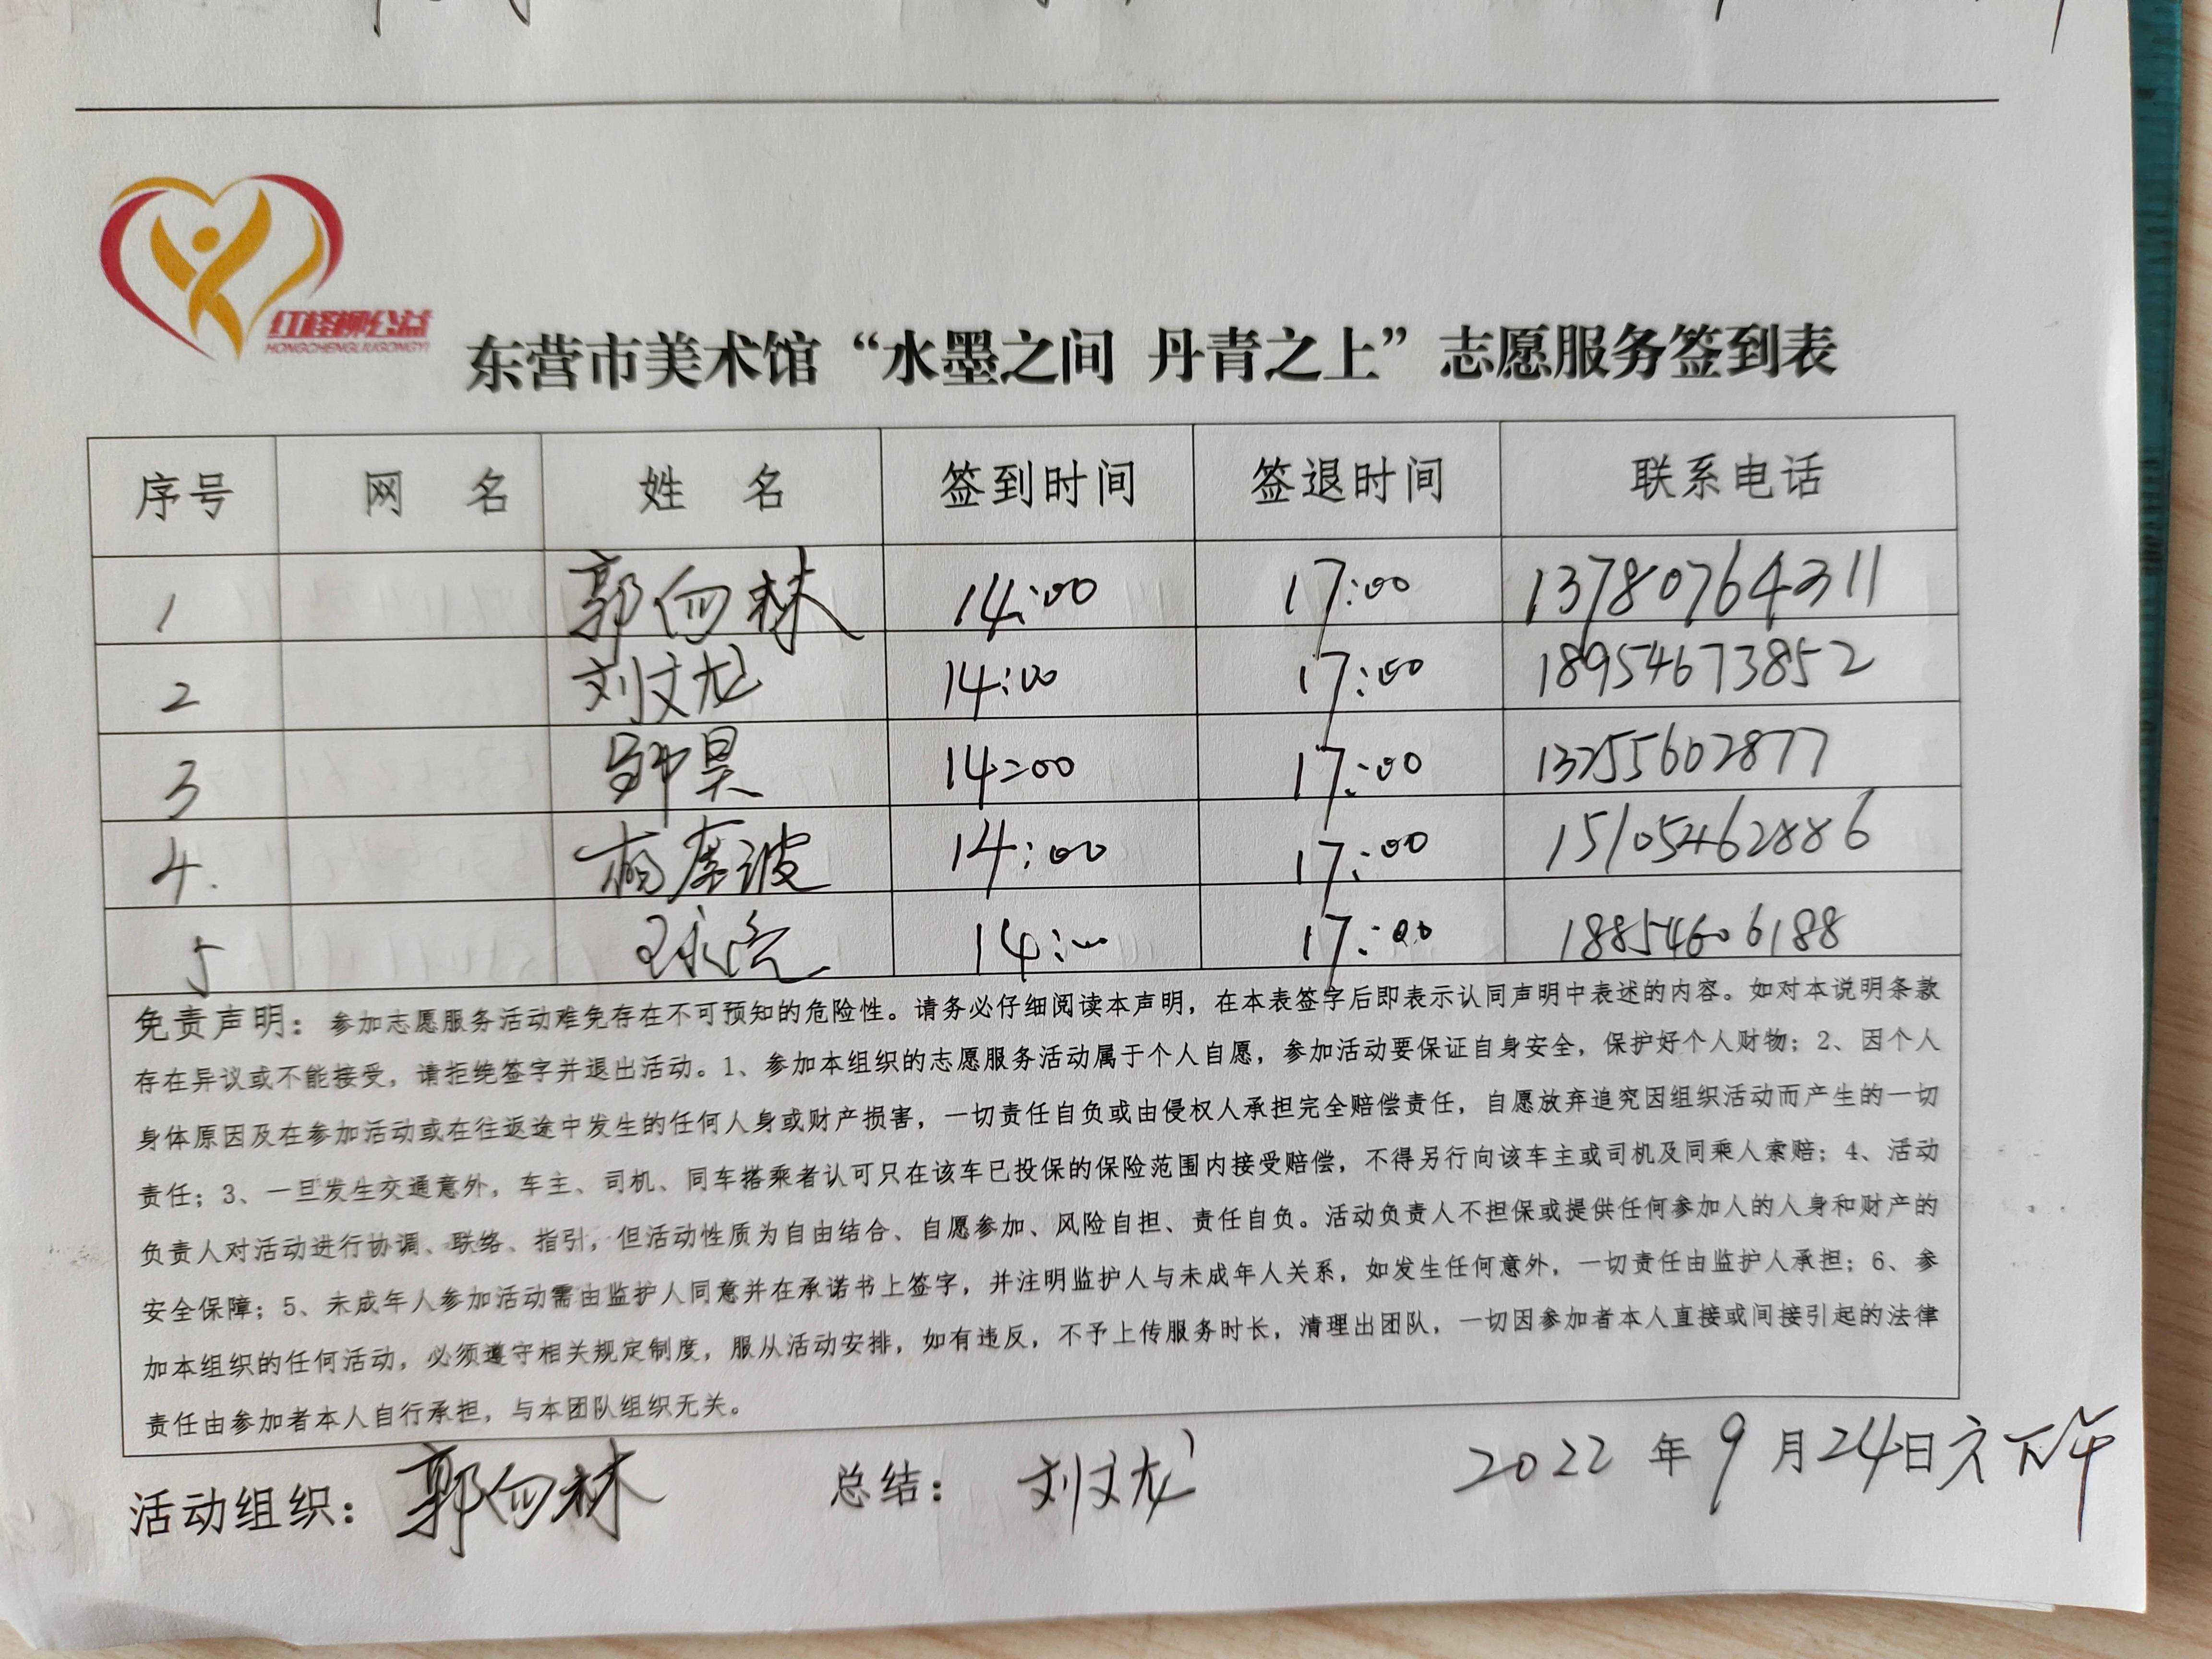 红柽柳公益
HONGCHENGLIUGONGYI
东营市美术馆“水墨之间 丹青之上”志愿服务签到表
序号 网 名 姓 名 签到时间 签退时间 联系电话
1 郭向林 14:00 17:00 13780764311
2 刘文龙 14:00 17:00 18954673852
3 昊 14:00 17:00 13255602877
4. 杨 波 14:00 17:00 15105462886
5 王 14:00 17:00 18854606188
免责声明：参加志愿服务活动难免存在不可预知的危险性。请务必仔细阅读本声明，在本表签字后即表示认同声明中表述的内容。如对本说明条款
存在异议或不能接受，请拒绝签字并退出活动。1、参加本组织的志愿服务活动属于个人自愿，参加活动要保证自身安全，保护好个人财物；2、因个人
身体原因及在参加活动或在往返途中发生的任何人身或财产损害，一切责任自负或由侵权人承担完全赔偿责任，自愿放弃追究因组织活动而产生的一切
责任；3、一旦发生交通意外，车主、司机、同车搭乘者认可只在该车已投保的保险范围内接受赔偿，不得另行向该车主或司机及同乘人索赔；4、活动
负责人对活动进行协调、联络、指引，但活动性质为自由结合、自愿参加、风险自担、责任自负。活动负责人不担保或提供任何参加人的人身和财产的
安全保障；5、未成年人参加活动需由监护人同意并在承诺书上签字，并注明监护人与未成年人关系，如发生任何意外，一切责任由监护人承担；6、参
加本组织的任何活动，必须遵守相关规定制度，服从活动安排，如有违反，不予上传服务时长，清理出团队，一切因参加者本人直接或间接引起的法律
责任由参加者本人自行承担，与本团队组织无关。
活动组织：郭向林 总结：刘文龙 2022年9月24日六下午